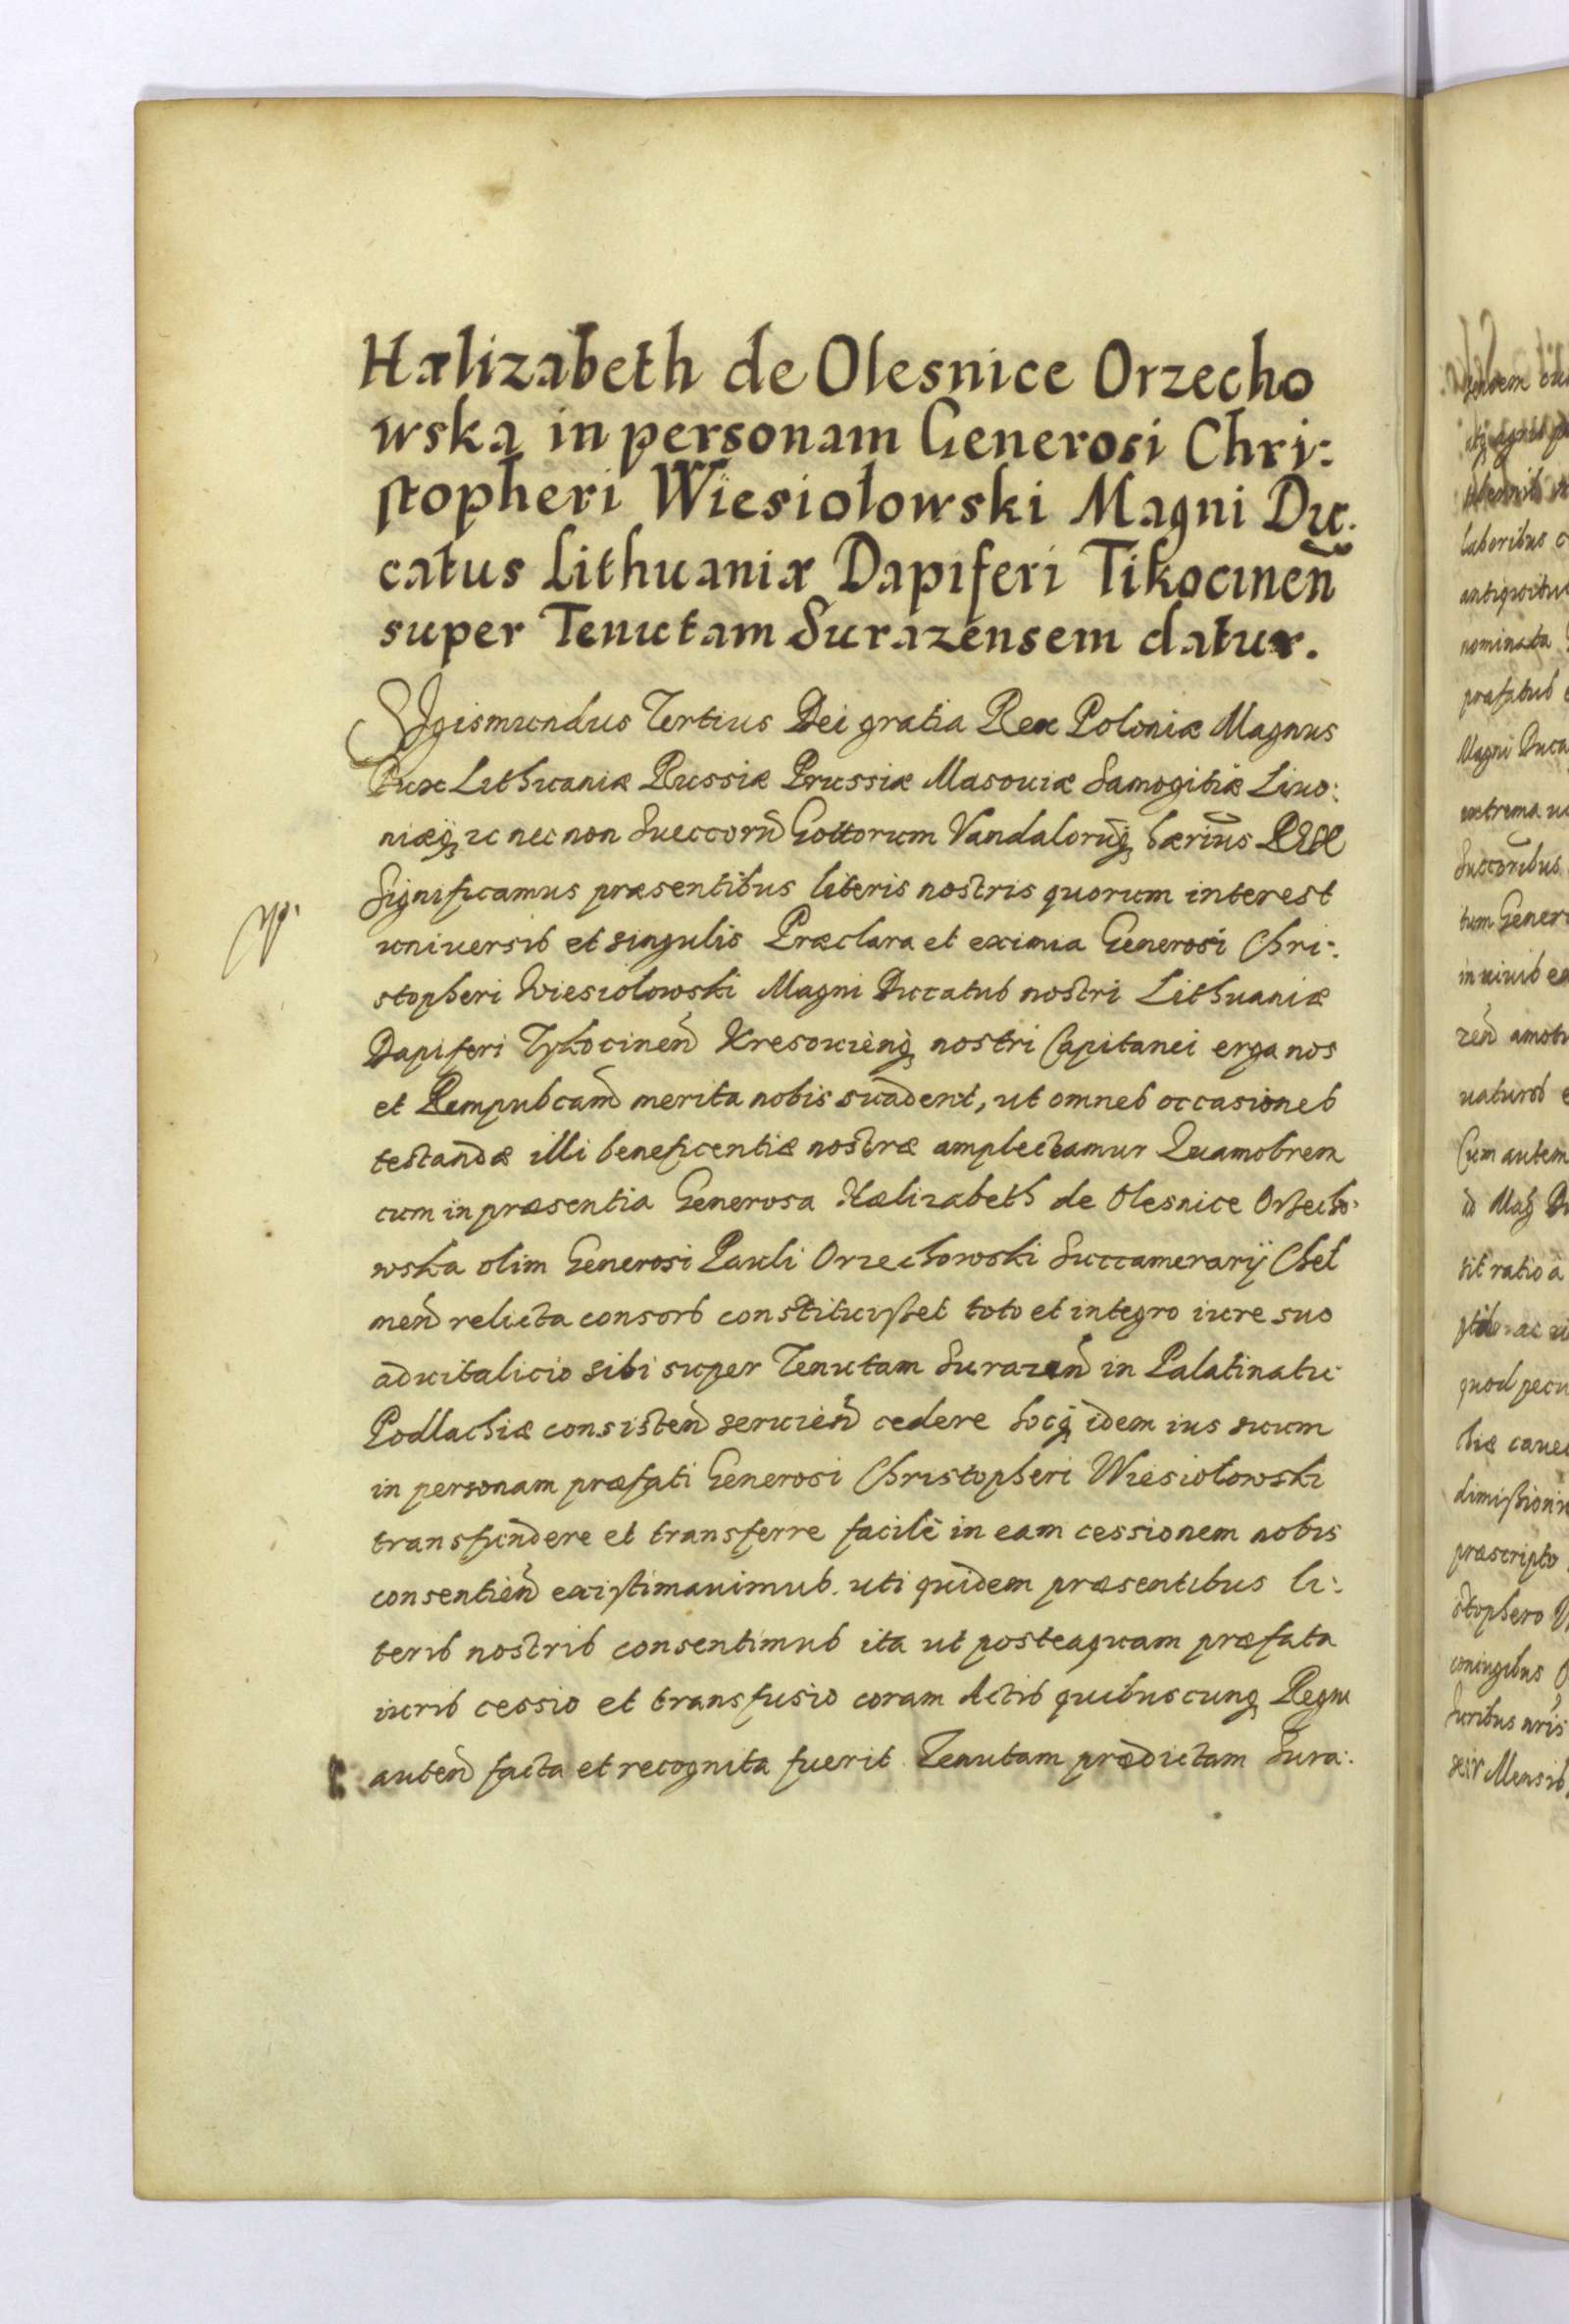 Hælizabeth de Olesnice Orzecho
wska in personam Generosi Chri:
stopheri Wiesiołowski Magni Du:
catus Lithuaniæ Dapiferi Tikocinen̄
super Tenutam Surazensem datur.
Sigismundus Tertius Dei gratia Rex Poloniæ Magnus
Dux Lithuaniæ Russiæ Prussiæ Masouiæ Samogitiæ Liuo:
niæq̧ zc nec non Sueccorū Gottorum Vandalorūq̧ hærius̄ REX
Significamus præsentibus literis nostris quorum interest
uniuersis et singulis Præclara et eximia Generosi Chri:
stopheri Wiesiołowski Magni Ducatus nostri Lithuaniæ
Dapiferi Tykocinen̄ Kresouienq̧ nostri Capitanei erga nos
et Rempubcam̄ merita nobis suadent, ut omnes occasiones
testandæ illi beneficentiæ nostræ amplectamur Quamobrem
cum in præsentia Generosa Hælizabeth de Olesnice Orzecho:
wska olim Generosi Pauli Orzechowski Succamerarij Chel
men̄ relicta consors constituisset toto et integro iure suo
aduitalicio sibi super Tenutam Surazen̄ in Palatinatu
Podlachiæ consisten̄ seruien̄ cedere hocq̧ idem ius suum
in personam præfati Generosi Christopheri Wiesiołowski
transfundere et transferre facilè in eam cessionem nobis
consentien̄ existimauimus. uti quidem præsentibus li:
teris nostris consentimus ita ut posteaquam præfata
iuris cessio et transfusio coram Actis quibuscunq̧ Regni
auten̄ facta et recognita fuerit Tenutam prædictam Sura:
laboribus
nominata
præfatus
Magni Duca
extrema
tum Gener
Cum autem
sit ratio à
præscripto
stophero